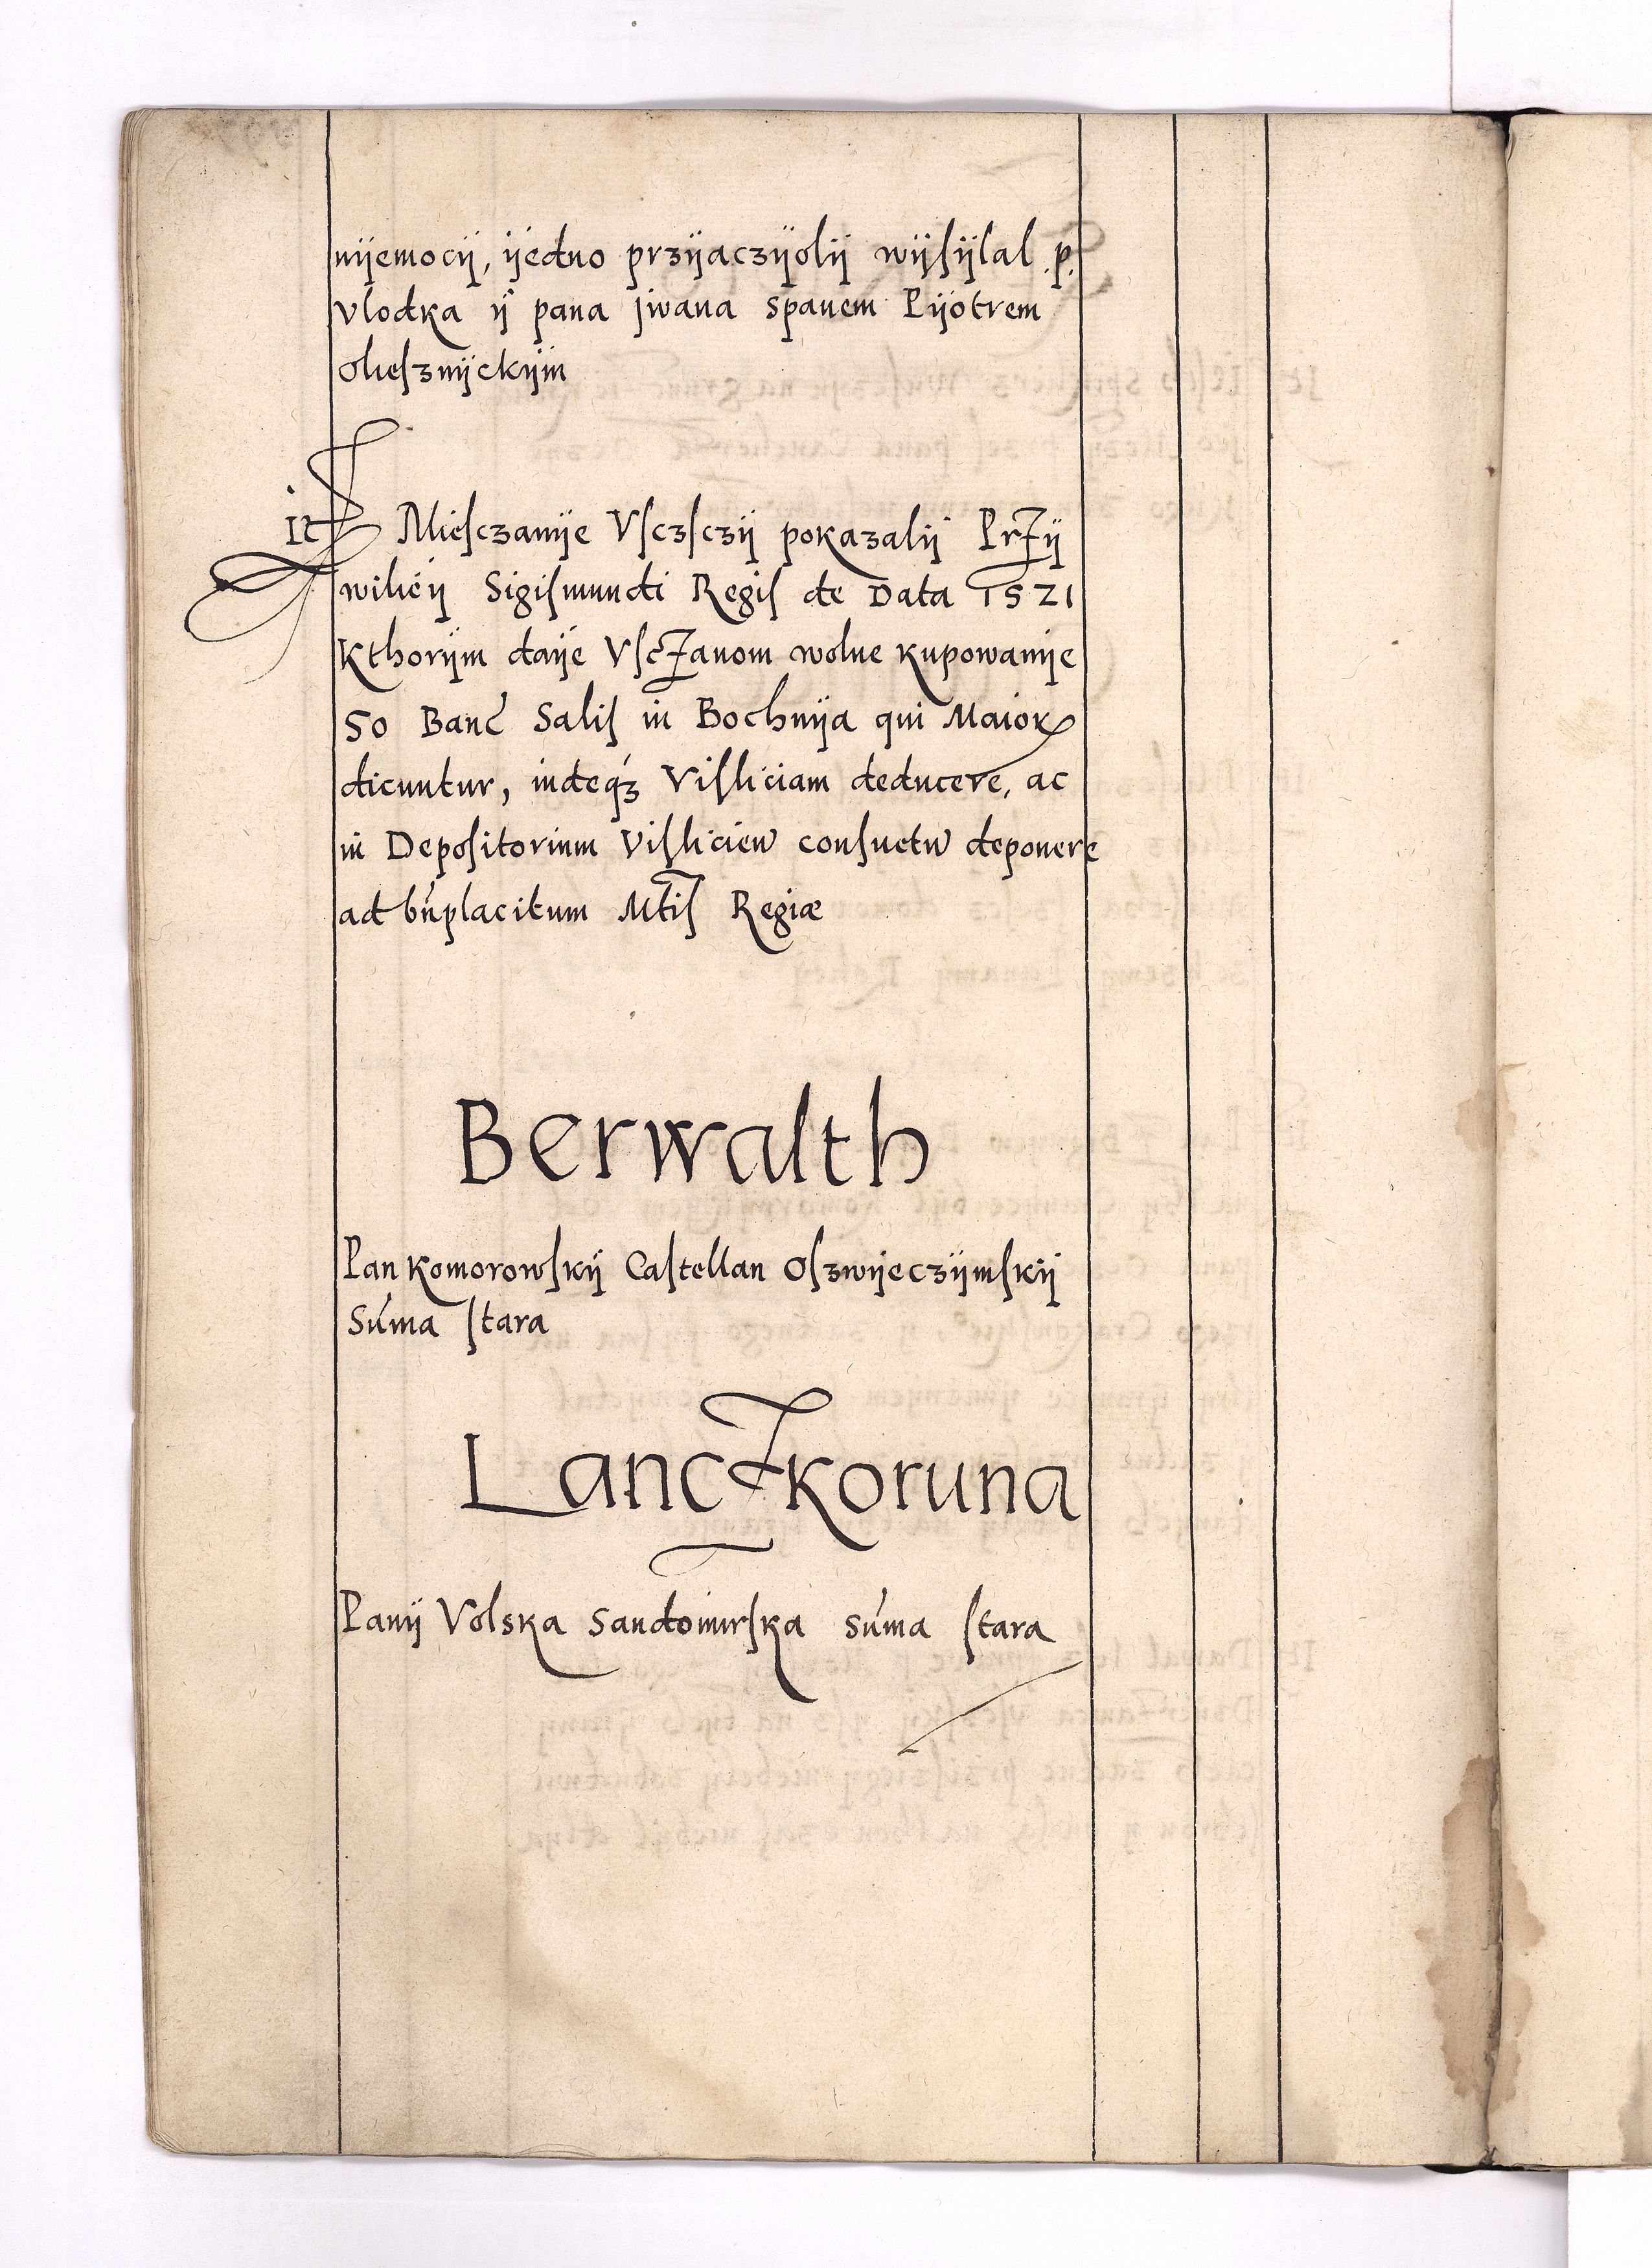 nijemocij, ijedno przijaczijolij wijsijlal .p.
Vlodka ij pana jwana spanem Pijotrem
Oliesznijckijm
It Miesczanije Vsczsczij pokazalij Przij
wiliéij Sigismundi Regis de Data 1521
Kthorijm daije Vsczanom wolne kupowanije
50 Banc̃ Salis in Bochnija qui Maiorꝝ
dicuntur, indeqꝫ Visliciam deducere, ac
in Depositorium Vislicieñ consuetũ deponere
ad bñplacitum Mtis Regiæ
Berwalth
Pan Komorowskij Castellan Oszwijeczijmskij
Súma stara
Lanczkoruna
Panij Volska Sandomirska súma stara